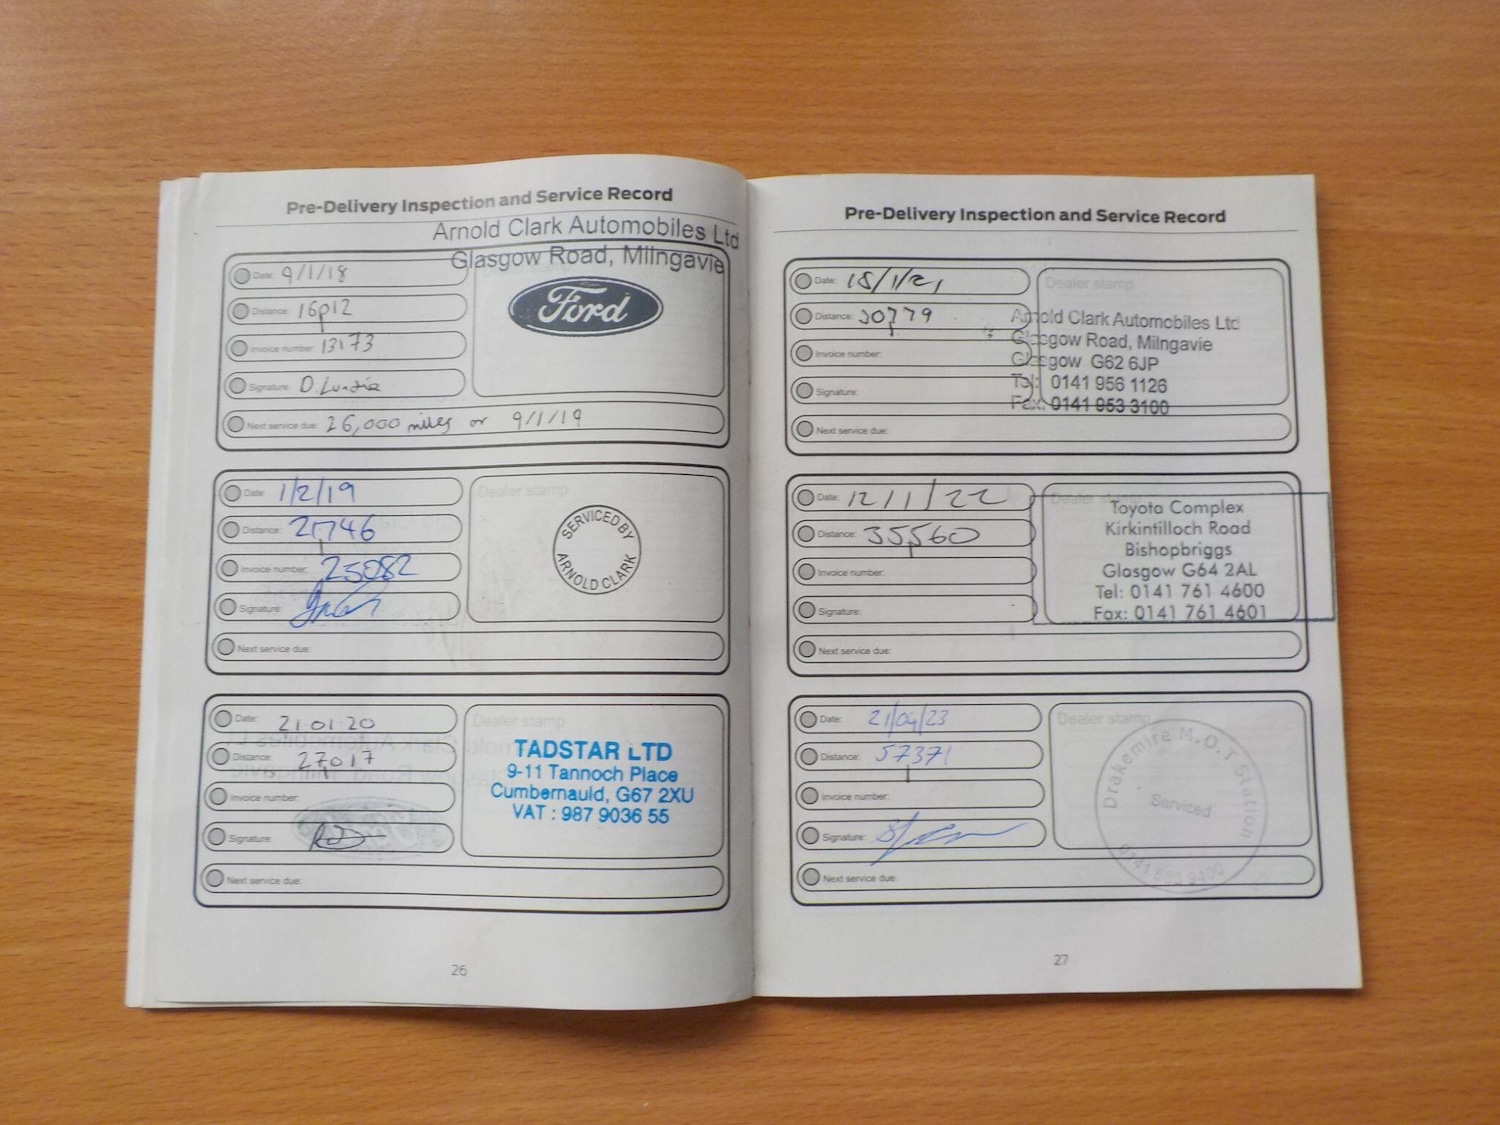 Pre-Delivery Inspection and Service Record
Arnold Clark Automobiles Ltd
Glasgow Road, Milngavie
Date: 9/1/18
Distance: 16012
Invoice number: 13173
Signature: D. Lundie
Next service due: 26,000 miles or 9/1/19
Dealer stamp
Ford
Date: 1/2/19
Distance: 21746
Invoice number: 25082
Signature:
Next service due:
Dealer stamp
SERVICED BY
ARNOLD CLARK
Date: 21.01.20
Distance: 27017
Invoice number:
Signature:
Next service due:
Dealer stamp
TADSTAR LTD
9-11 Tannoch Place
Cumbernauld, G67 2XU
VAT : 987 9036 55
26
Pre-Delivery Inspection and Service Record
Date: 18/1/21
Distance: 30779
Invoice number:
Signature:
Next service due:
Dealer stamp
Arnold Clark Automobiles Ltd
Glasgow Road, Milngavie
Glasgow G62 6JP
Tel: 0141 956 1126
Fax: 0141 953 3100
Date: 12/1/22
Distance: 35560
Invoice number:
Signature:
Next service due:
Dealer stamp
Toyota Complex
Kirkintilloch Road
Bishopbriggs
Glasgow G64 2AL
Tel: 0141 761 4600
Fax: 0141 761 4601
Date: 21/04/23
Distance: 57371
Invoice number:
Signature:
Next service due:
Dealer stamp
Drakemire M.O.T Station
Serviced
0141 583 9400
27